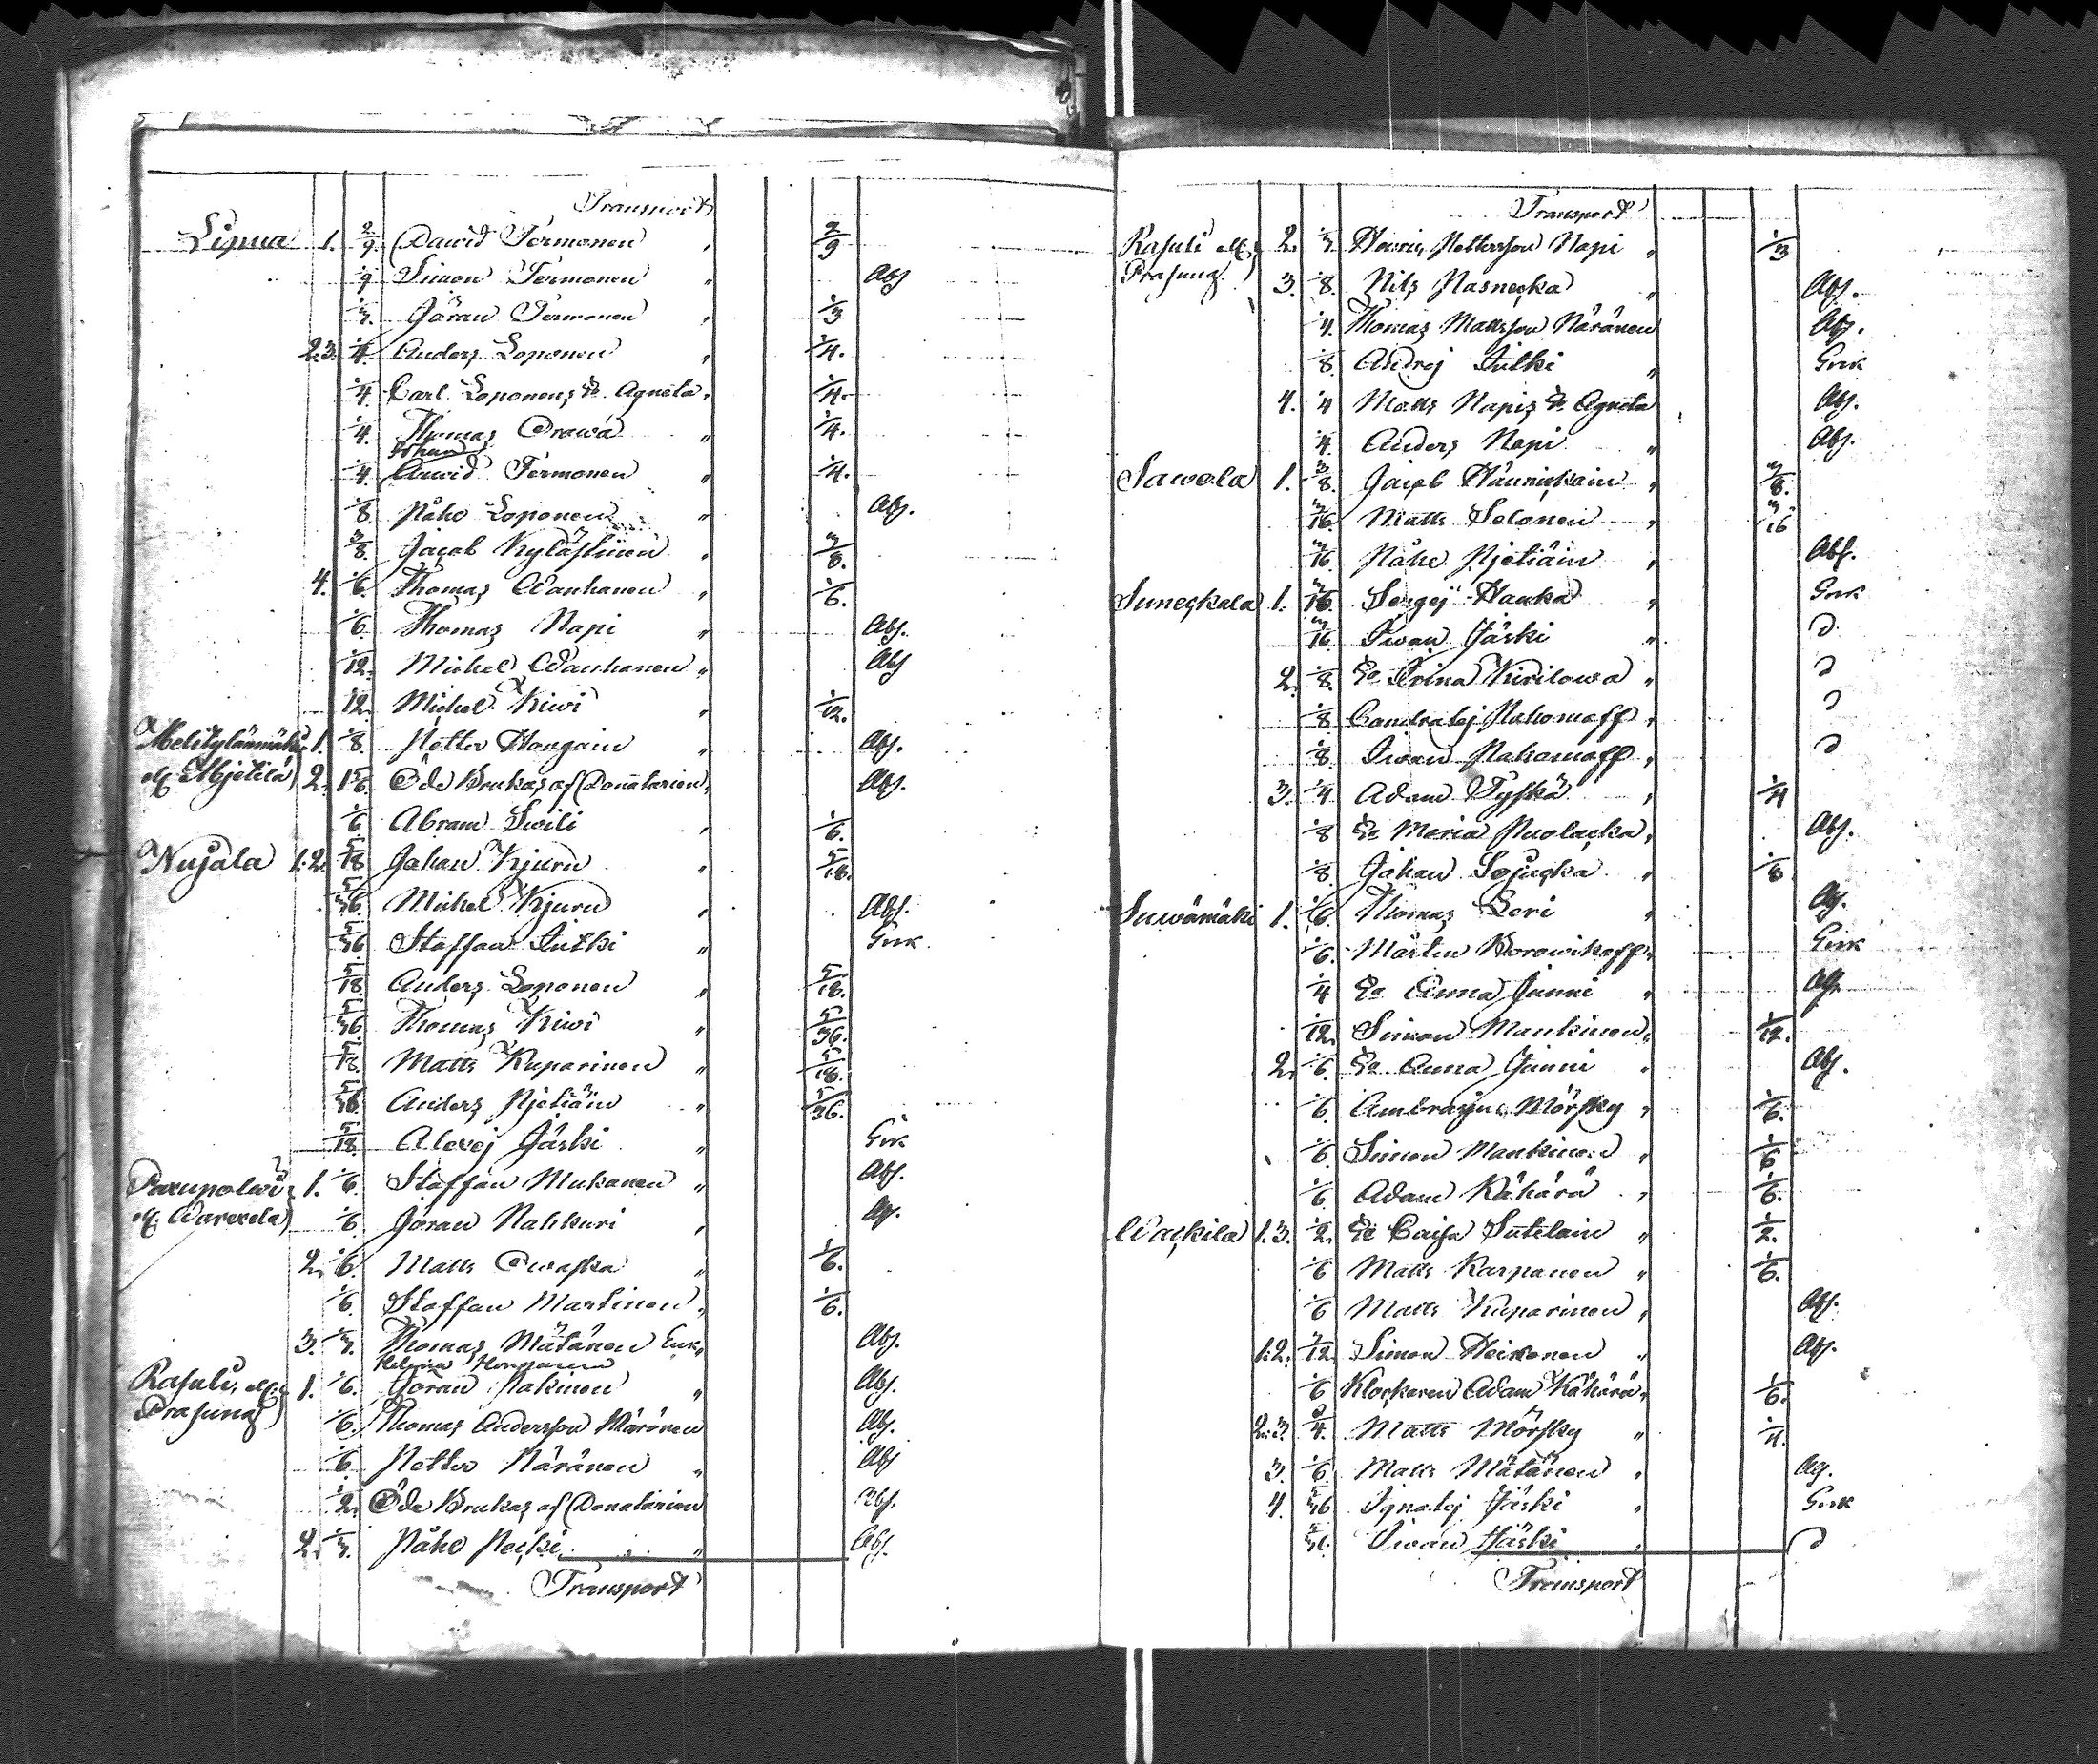 Transport
Lipua 1. 2/9. David Termonen " 2/9
1/9 Simon Termonen " Abs
1/3. Göran Termonen " 1/3
2.3. 1/4. Anders Loponen " 1/4.
1/4 Carl Loponens Agneta " 1/4.
1/4. Thomas Orawa " 1/4.
Johan
1/4 David Termonen " 1/4.
1/8. Påhe Loponen " Abs.
3/8. Jacob Kyläslinen " 3/8.
4. 1/6. Thomas Wanhanen " 1/6.
1/6. Thomas Napi " Abs.
1/12. Michel Wanhanen " Abs
1/12. Michel Kiwi " 1/12.
1. 1/8. Petter Hongain " Abs.
2. Öde Brukas af Donatarien " Abs.
1/6. Abram Swili " 1/6.
Nujala 1.2. 5/18 Johan Kjuru " 5/18.
5/36. Michel Kjuru " Abs.
5/36 Staffan Jutki " Grek.
5/18. Anders Loponen " 5/18.
5/36 Thomas Kiwi " 5/36.
5/18. Matts Kuparinen " 5/18.
5/36. Anders Pjetiäin " 5/36.
5/18. Alexej Jäski " Grek
1. 1/6. Staffan Mukanen " Abs.
1/6. Göran Nahkuri " Abs.
2. 1/6. Matts Owaska " 1/6.
1/6. Staffan Martinen " 1/6.
3. 1/3. Thomas Mätänen Enk. Abs.
Helena
Rasuli, ell. 1. 1/6. Göran Pakinen " Abs.
Prasuna 1/6. Thomas Andersson Näränen Abs.
1/6 Petter Näränen " Abs
1/2. Öde Brukas af Donatarien Abs.
2. 1/3. Påhe Peçki " Abs.
Transport
Transport
Rasuli ell. 2. 1/3. Henric Pettersson Napi " 1/3
Prasuna 3. 1/8. Nils Rasneçka " Abs.
1/4. Thomas Mattsson Näränen Abs.
1/8 Andrej Jutki " Grek
4. 1/4 Matts Napis Agneta Abs.
1/4. Anders Napi " Abs.
Sawola 1. 3/8. Jacob Hänniçkäin " 3/8.
3/16. Matts Solonen " 3/16
3/16. Påhe Pjetiäin " Abs.
Suneçkala 1. 3/16. Sergej Hauka " Grek
3/16 Iwan Jäski " D.
2. 1/8. Ea Irina Kirilowa " D
1/8 Condratej Pahomoff " D
1/8. Iwan Pahomoff " D
3. 1/4 Adam Tyskä " 1/4
1/8 Ea Maria Puolaçka " Abs.
1/8. Johan Sojaçka " 1/8
Suwämäki 1. 1/6. Thomas Leri " Abs.
1/6. Mårten Borowikoff " Grek
1/4 Ea Anna Junni " Abs.
1/12. Simon Mankinen " 1/12.
2. 1/6. Ea Anna Junni " Abs.
1/6. Mörsky " 1/6.
1/6. Simon Mankinen " 1/6
1/6 Adam Kähärä " 1/6.
Waçkila 1.3. 1/2. Ea Caisa Sutelain " 1/2.
1/6 Matts Karpanen " 1/6.
1/6 Matts Kuparinen " Abs.
1.2. Simon Heikonen " Abs.
1/6 Klockaren Adam Kähärä " 1/6.
2.3. Matts Mörsky " 1/4.
3. 1/6. Matts Mätänen " Abs.
4. 5/36 Ignatej Jäski " Grek
Iwan Jäski " D
Transport